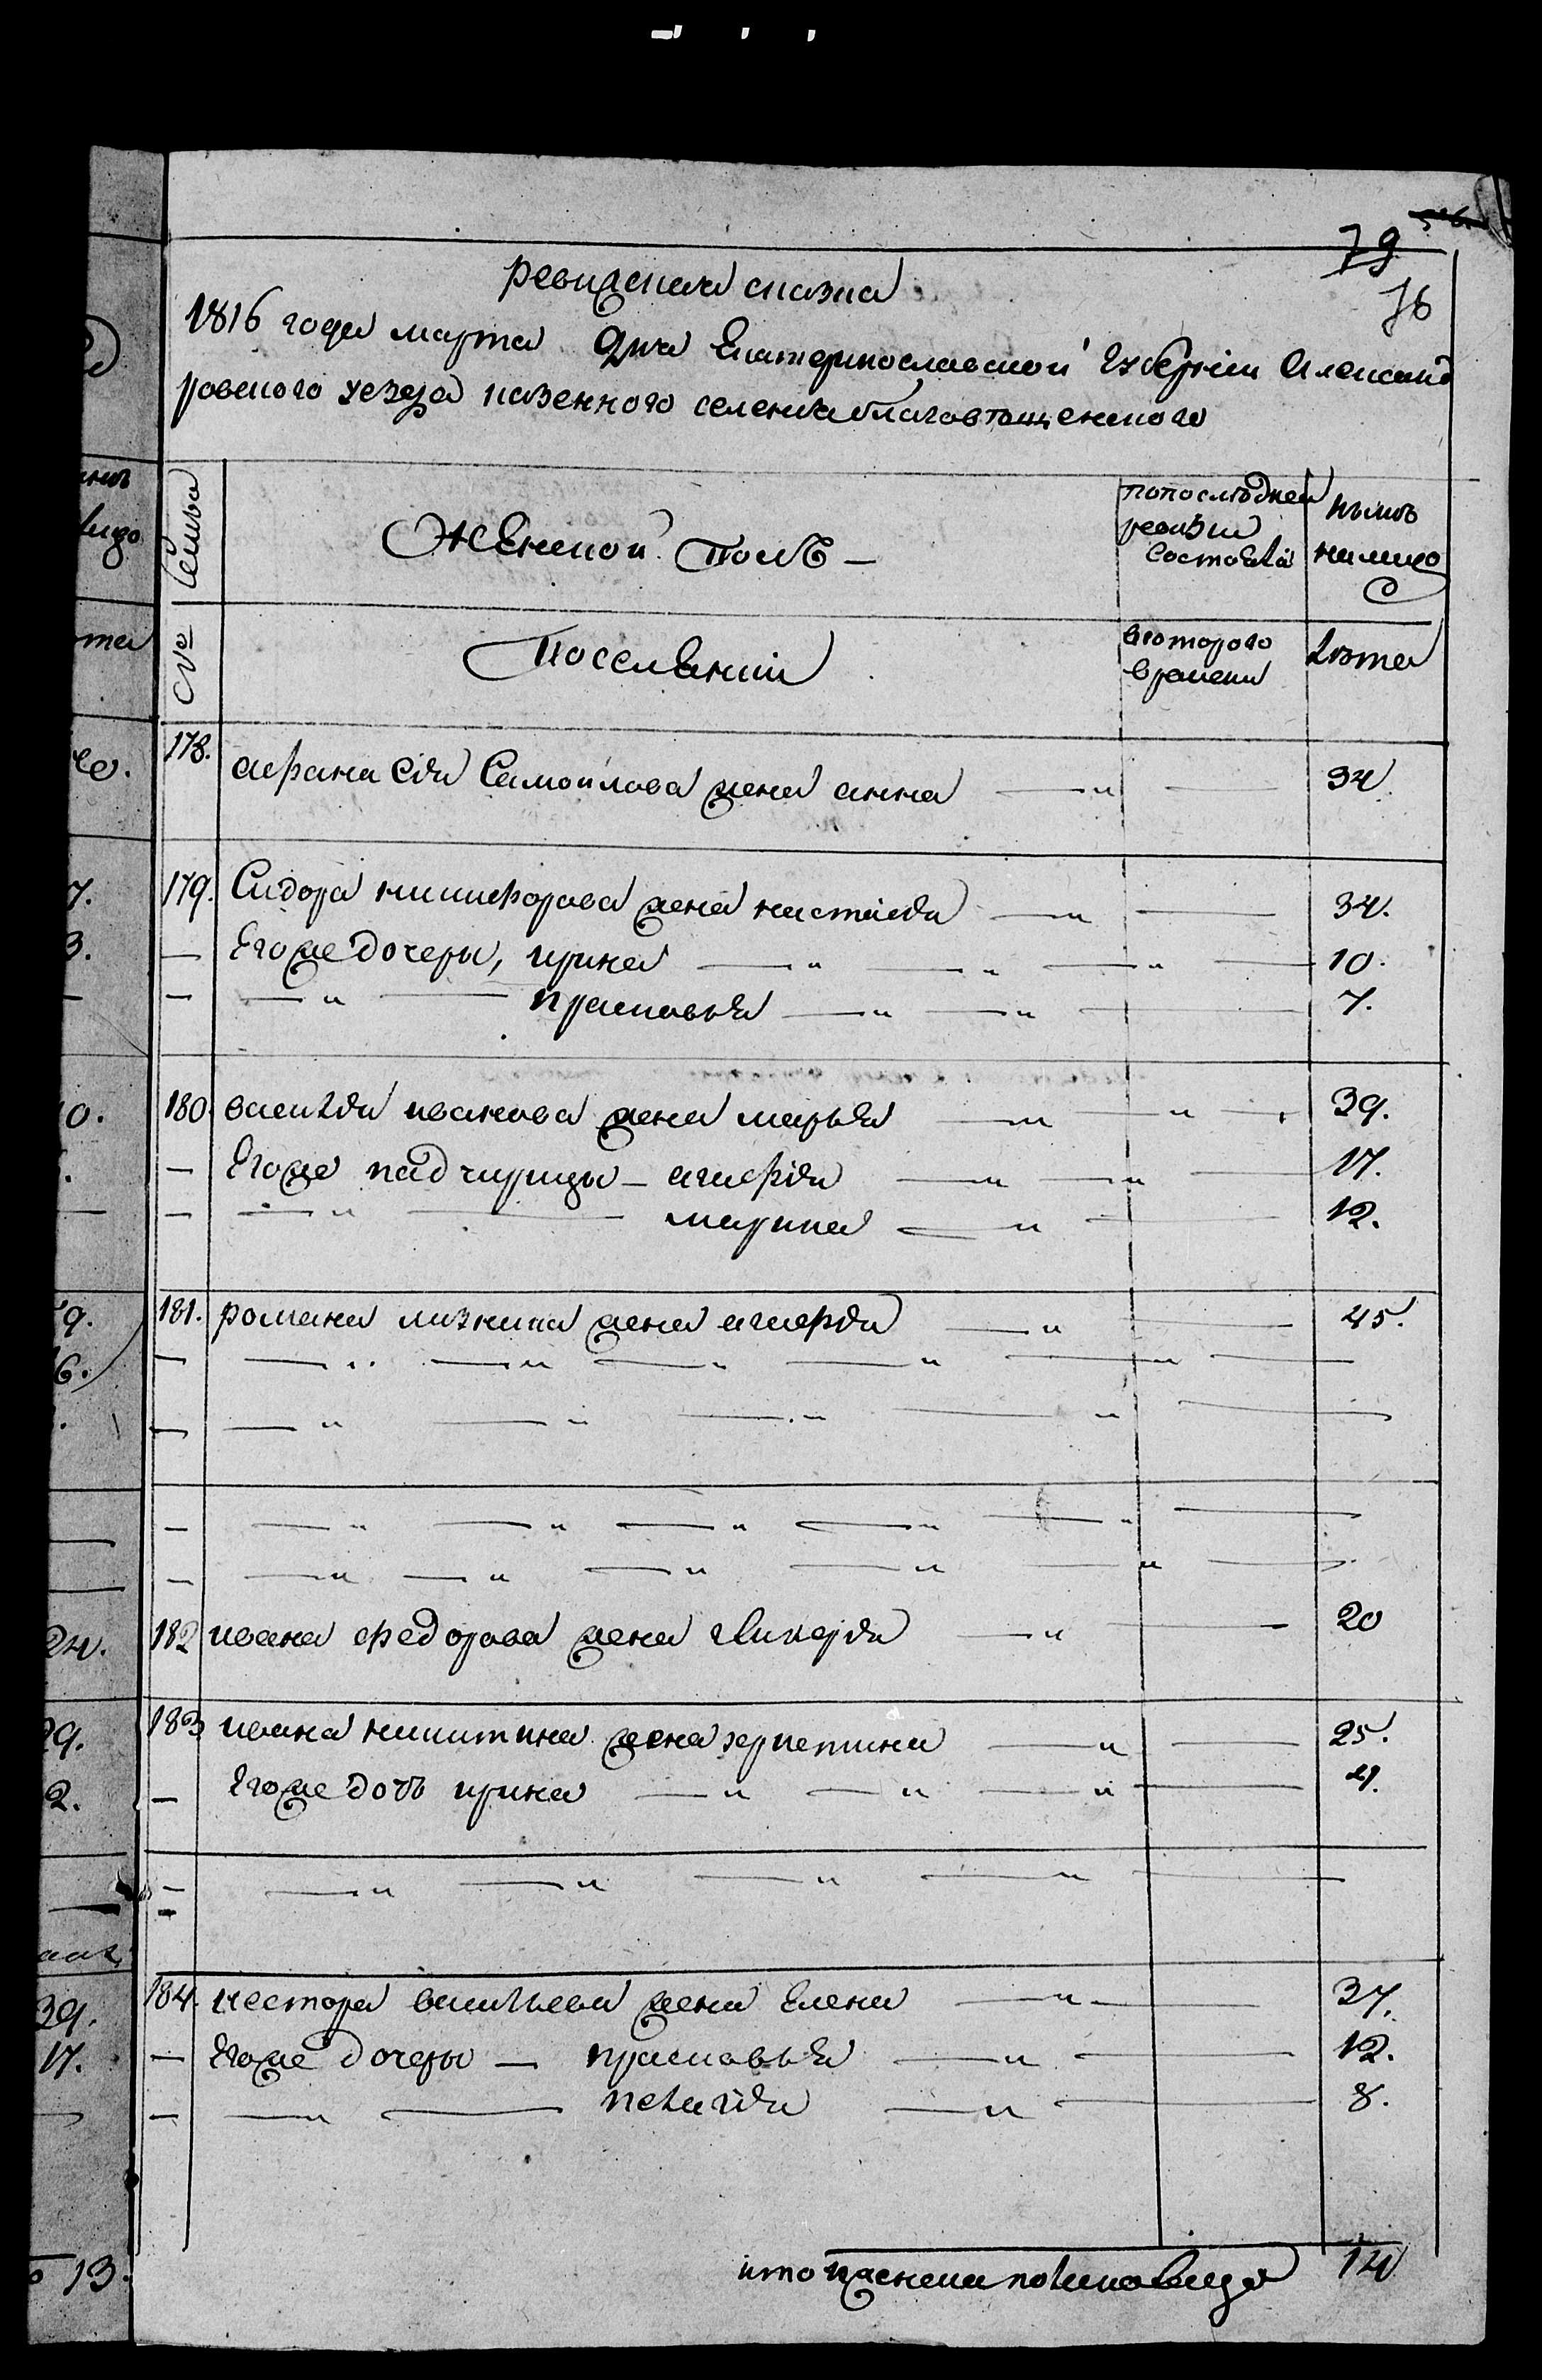 79
76
ревизская сказка
1816 года марта дня Екатеринославской губернии Александ
ровского уезда казенного селения благовѣщенского
Семьи
Женской полъ
попослѣдней ревизии состояла
нынѣ налицо
№
поселянии
скоторого времени
Лѣта
178. афанасія Самойлова жена анна 34
179. Сидора никифорова жена настасія 34.
— Егоже дочеры, ирина 10.
— прасковья 7.
180. василія иванова жена марья 39.
— Егоже падчирицы — агафія 17.
— марина 12.
181. романа жена агафія 45.
182 ивана федорова жена гликерія 20
183 ивана никитина жена 25.
— Егоже дочь ирина 4.
184. нестора васильева жена Елена 37.
— Егоже дочеры — прасковья 12.
— пелагія 8.
итого женска пола налицо 14